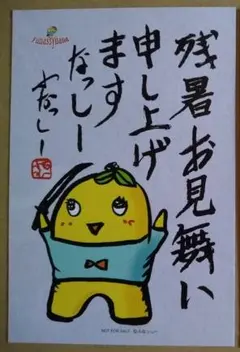 残暑お見舞い
申し上げ
ます
なっしー
ふなっしー
NOT FOR SALE